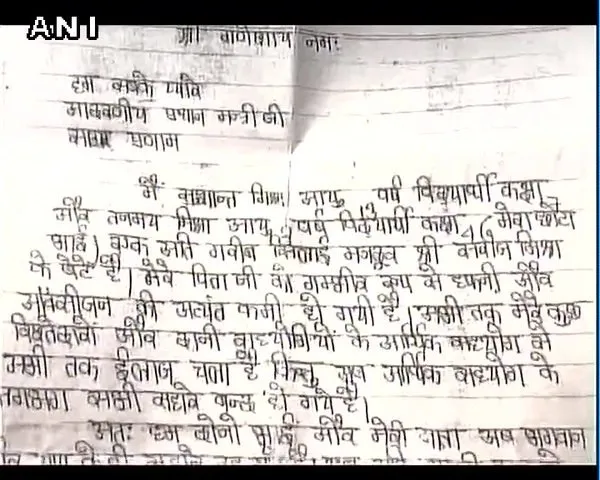 ANI
श्री गणेशाय नमः
हम सबके प्रिय
माननीय प्रधान मन्त्री जी
सादर प्रणाम
मैं सुशान्त मिश्रा आयु वर्ष विद्यार्थी कक्षा
और तनमय मिश्रा आयु वर्ष विद्यार्थी कक्षा (मेरा छोटा
भाई) एक अति गरीब सिलाई मजदूर श्री सरोज मिश्रा
के बेटे हैं। मेरे पिता जी को गम्भीर रूप से और
आक्सीजन की अत्यंत कमी हो गयी है। अभी तक मेरे कुछ
और दानी सहयोगियों के आर्थिक सहयोग से
अभी तक ईलाज चला है किन्तु अब आर्थिक सहयोग के
लगभग सभी सहारे बन्द हो गये हैं।
अतः हम दोनो भाई और मेरी माता अब भगवान